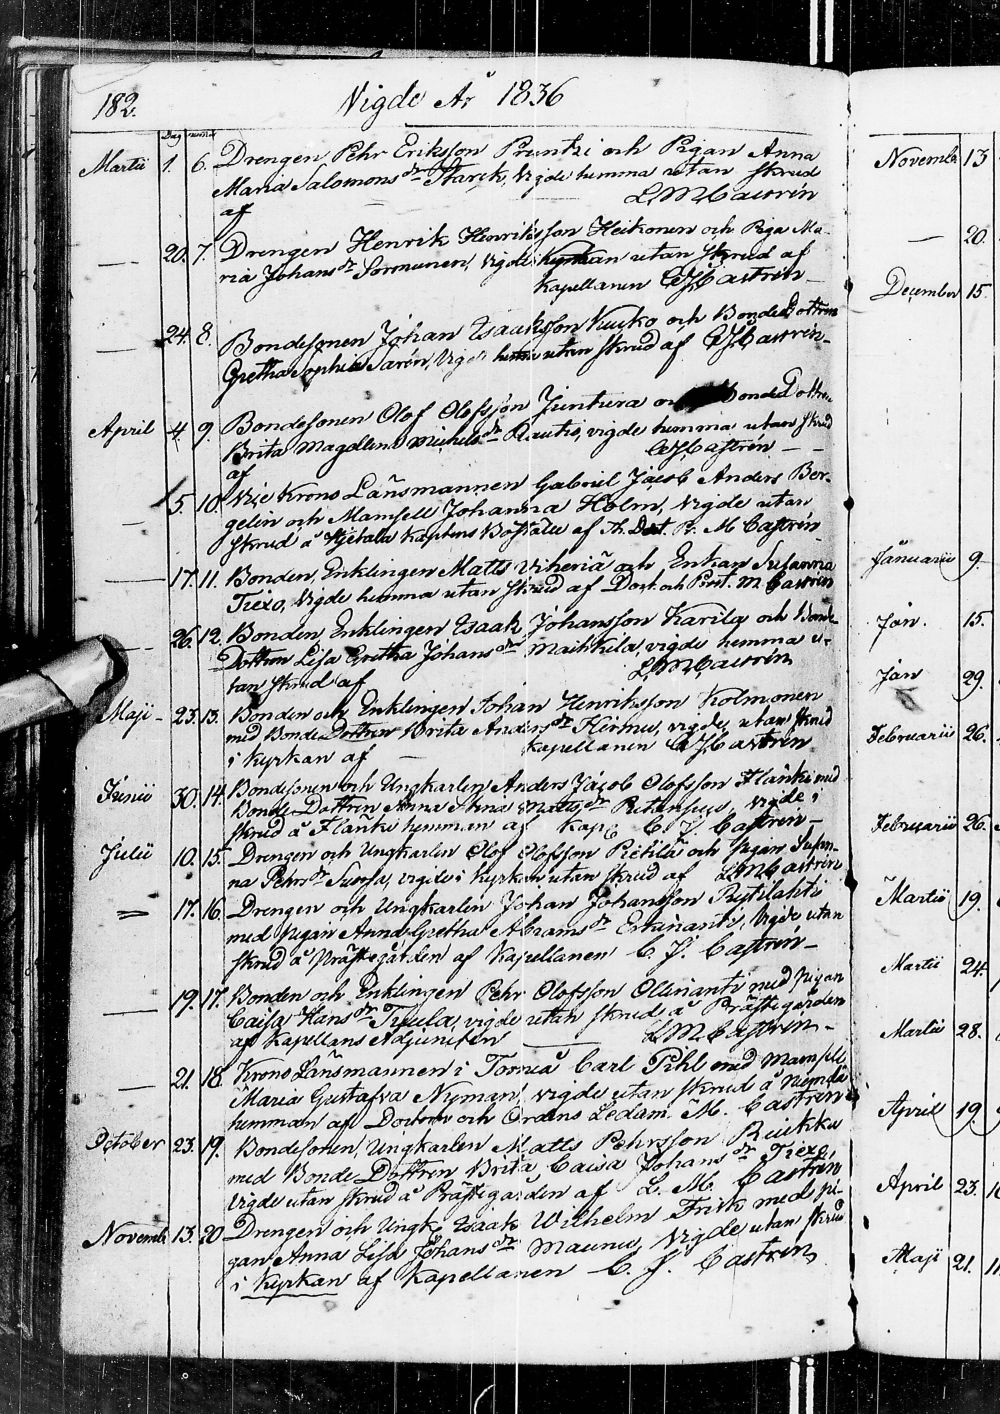 182.
Vigde År 1836
Dag num̄er
Martii 1. 6. Drengen Pehr Eriksson Pruntzi och Pigan Anna
Maria Salomonsdr Starck, Vigde hemma utan Skrud
af L M Castrén
— 20. 7. Drengen Henrik Henriksson Heikonen och Piga Ma-
ria Johansdr Sormunen, Vigde utan Skrud af
Kapellanen C J Castrén —
— 24. 8. Bondesonen Johan Isaaksson Kuuko och BondeDottren
Gretha Sophia Sarén, Vigde hemma utan skrud af C J Castrén —
April 4. 9. Bondesonen Olof Olofsson Juntura och BondeDottren
Brita Magdlena Michelsdr Rautio, vigde hemma utan skrud
af C J Castrén — —
— 5. 10. Vice Krono Länsmannen Gabriel Jacob Anders Ber-
gelin och Mamsell Johanna Holm, Vigde utan
skrud å Hjetala Kaptens Boställe af Th. Doct. Pr. M Castrén
— 17. 11. Bonden, Enklingen Matts Viheriä och Enkan Susanna
Trexo, Vigde hemma utan skrud af Doct. och Prost. M Castrén
— 26. 12. Bonden, Enklingen Isaak Johansson Karila och Bonde-
Dottren Lisa Gretha Johansdr Maikkila, vigde hemma u-
tan skrud af L M Castrén
Maji — 23. 13. Bonden och Enklingen Johan Henriksson Kolmonen
med BondeDottren Brita Andersdr Hirmu, vigde, utan skrud
i kyrkan af — Kapellanen C J Castrén
Junii 30. 14. Bondesonen och Ungkarlen Anders Jacob Olofsson Flänki med
BondeDottren Anna Stina Mattsdr , Vigde i
skrud å Flänki hemman af Kap. C. J. Castrén —
Julii 10. 15. Drengen och Ungkarlen Olof Olofsson Pietilä och pigan Susan-
na Pehrsdr Sursa, vigde i Kyrkan utan skrud af L M Castrén
= 17. 16. Drengen och Ungkarlen Johan Johansson Rytilahti
med pigan Anna Gretha Abramsdr Erkinantti, Vigde utan
skrud å Prästegården af Kapellanen C. J. Castrén —
— 19. 17. Bonden och Enklingen Pehr Olofsson Ollinantti med pigan
Caisa Hansdr Tyula, vigde utan skrud å Prästegården
af Kapellans Adjuncten — L M Castrén —
— 21. 18. Krono Länsmannen i Torneå Carl Pihl med Mamsell
Maria Gustafva Nyman, vigde utan skrud å
hemman af Doctorn och Ordens Ledam. M. Castrén
October 23. 19. Bondesonen, Ungkarlen Matts Pehrsson Ruikka
med BondeDottren Brita Caisa Johansdr Trexo,
Vigde utan skrud å Prästegården af L. M. Castrén
Novemb. 13. 20. Drengen och Ungk. Isaak Wilhelm Frisk med pi-
gan Anna Lisa Johansdr Maunu, Vigde utan skrud
i Kyrkan af Kapellanen C. J. Castrén
Novemb. 13
— 20.
December 15.
Januarii 9
Jan. 15.
Jan 29.
Februarii 26.
Februarii 26.
Martii 19.
Martii 24.
Martii 28.
April 19.
April 23.
Maji 21.